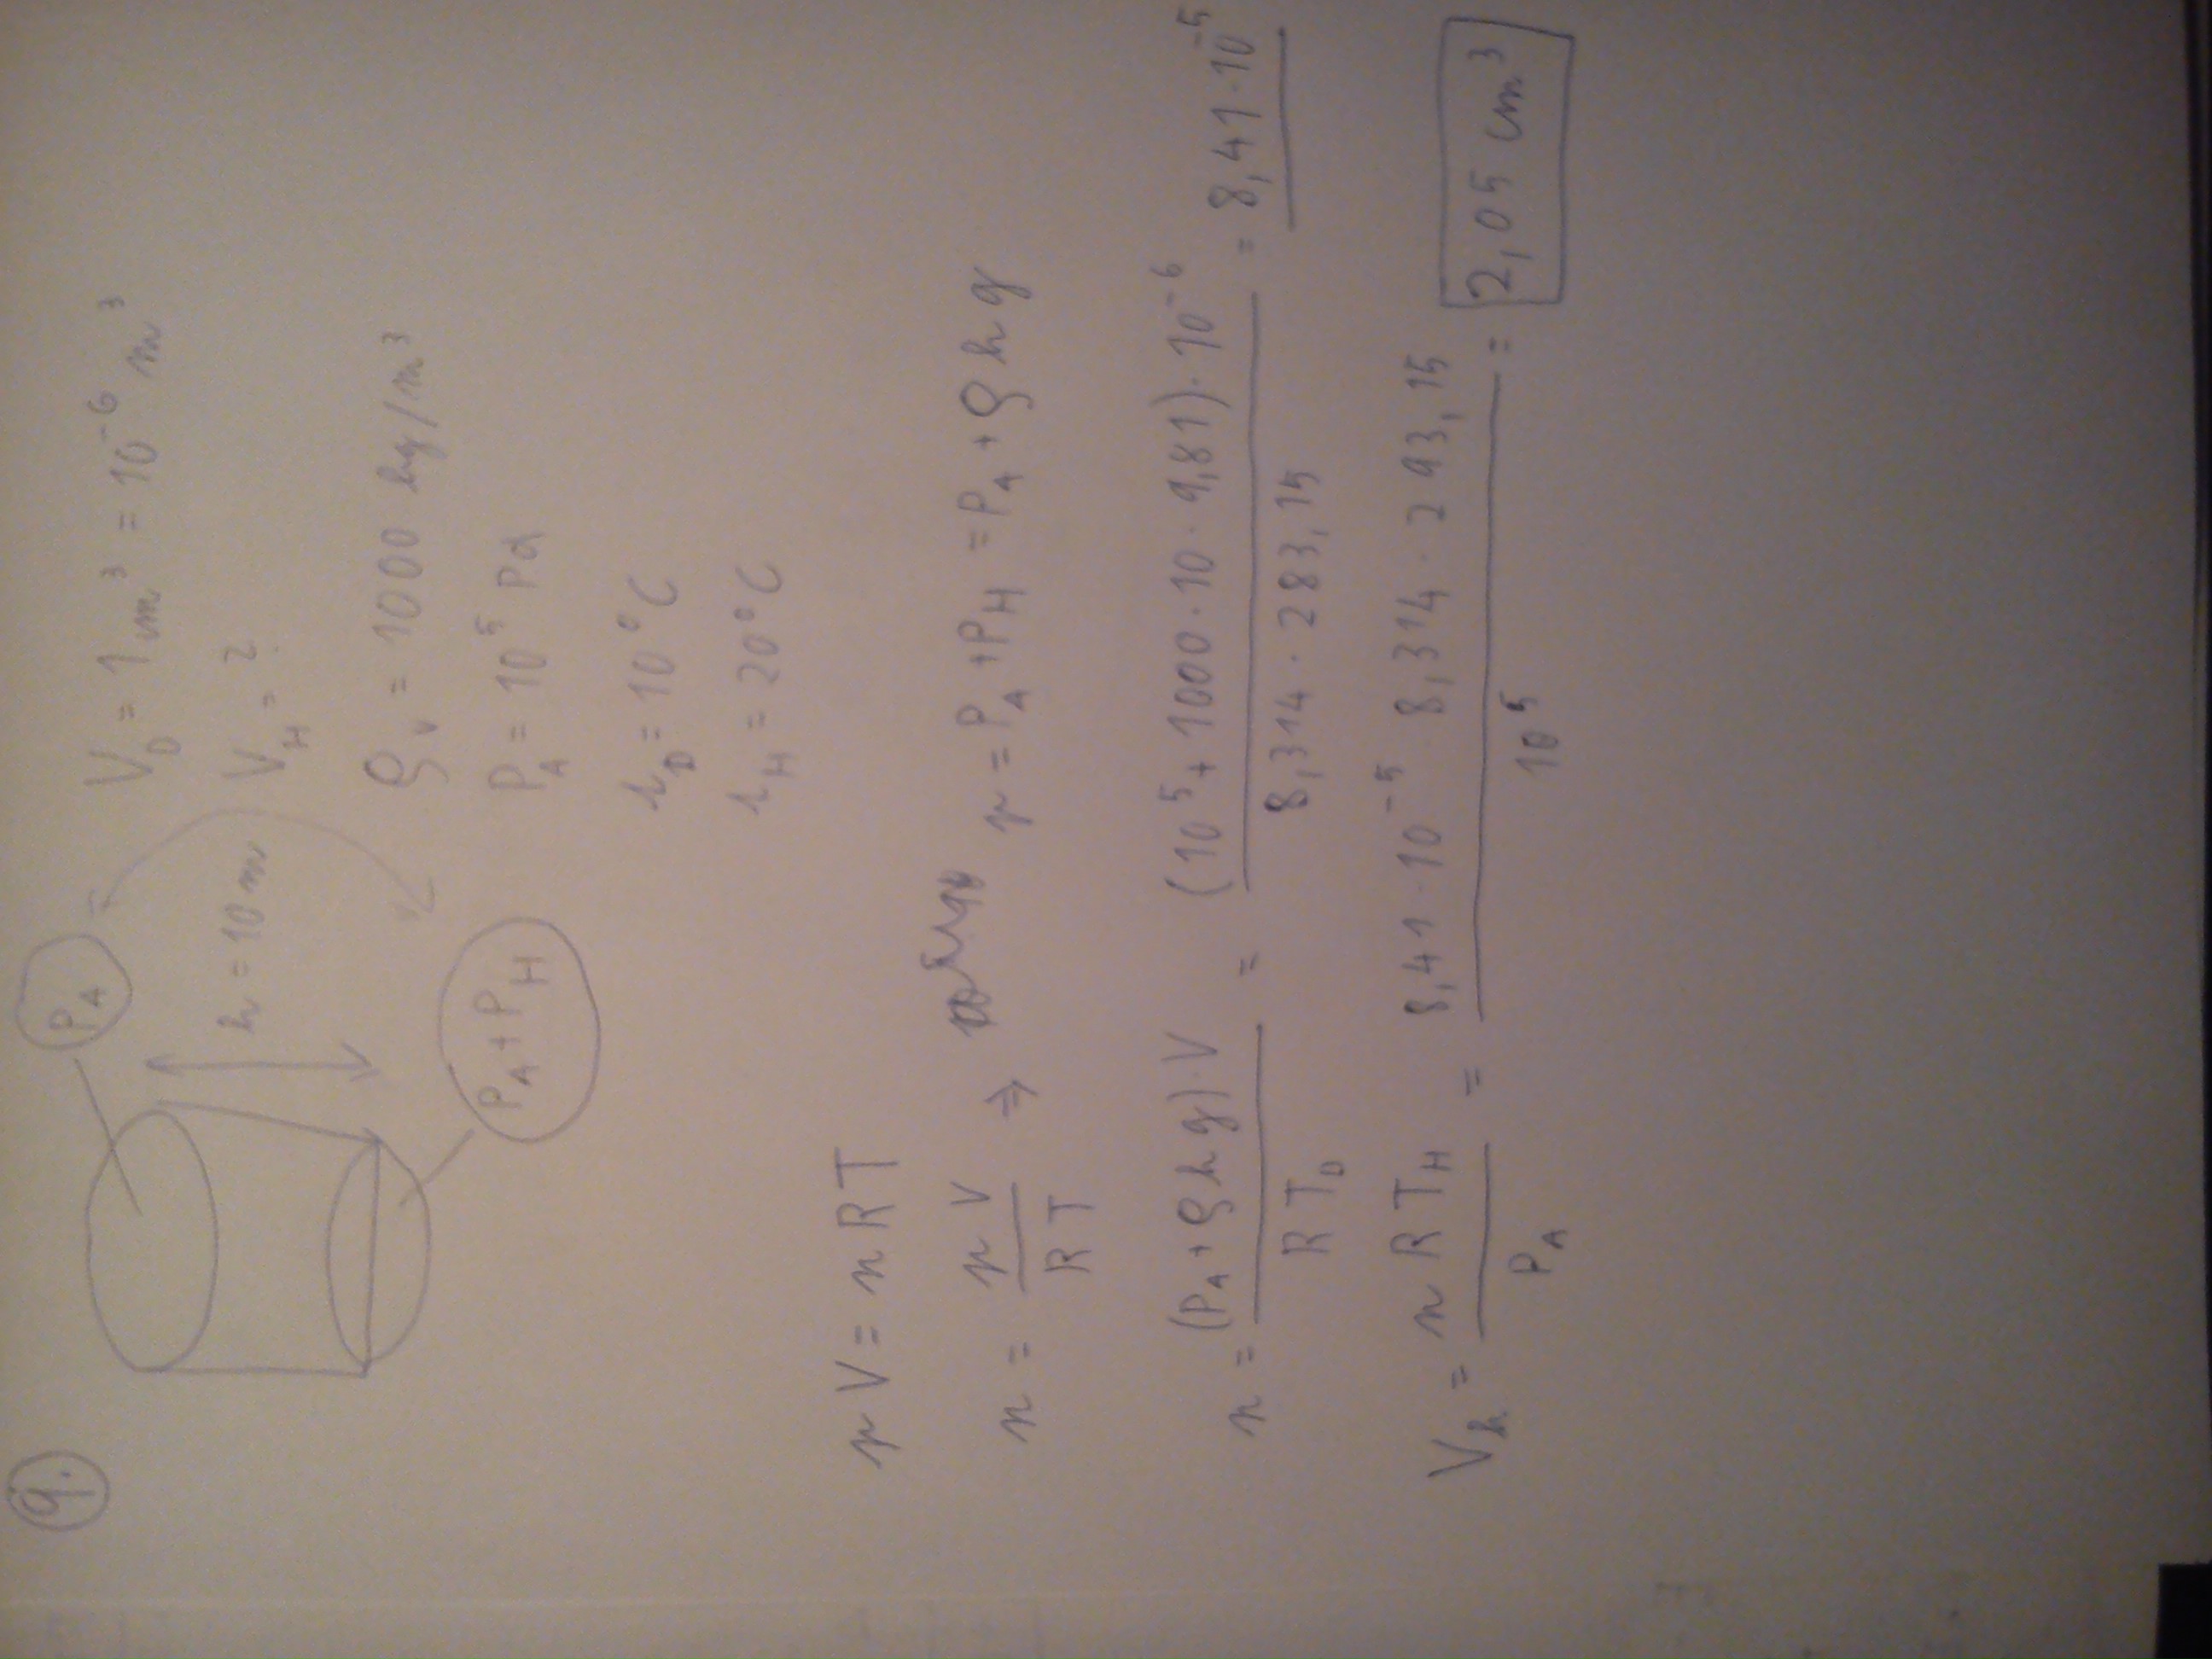 9.
P_A =
V_D = 1 cm³ = 10⁻⁶ m³
h = 10 m
V_H = ?
ρ_v = 1000 kg/m³
P_A + P_H
P_A = 10⁵ Pa
t_D = 10 °C
t_H = 20 °C
p V = n R T
n = p V / R T ⇒ p = P_A + P_H = P_A + ρ h g
n = (P_A + ρ h g) · V / R T_D = (10⁵ + 1000 · 10 · 9,81) · 10⁻⁶ / 8,314 · 283,15 = 8,41 · 10⁻⁵
V_h = n R T_H / P_A = 8,41 · 10⁻⁵ · 8,314 · 293,15 / 10⁵ = 2,05 cm³